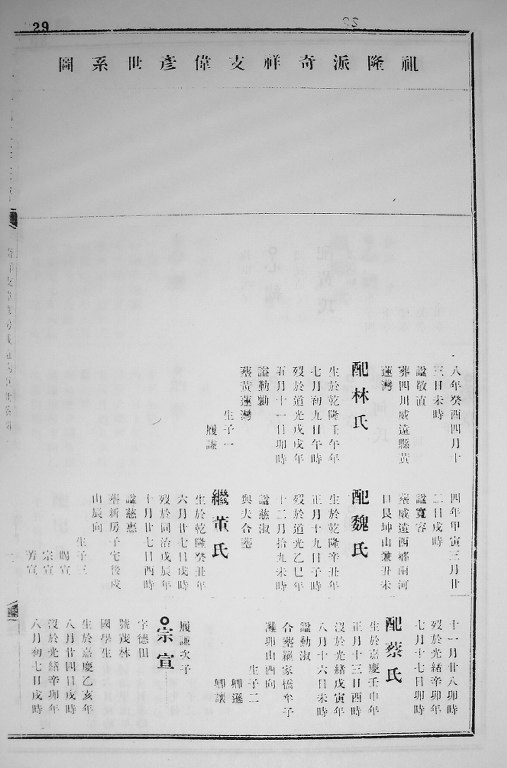 29
祖隆派奇祥支偉彥世系圖
八年癸酉四月十
三日未時
諡敬直
葬四川威遠縣黃
蓮灣
配林氏
生於乾隆壬午年
七月初九日午時
歿於道光戊戌年
五月十一日卯時
諡勤勷
葬黃蓮灣
生子一
履謙
四年甲寅三月廿
二日戌時
諡寬容
葬威遠西鄉兩河
口艮坤山兼丑未
配魏氏
生於乾隆辛丑年
正月十九日子時
歿於道光乙巳年
十二月拾九未時
諡慈淑
與夫合葬
繼董氏
生於乾隆癸丑年
六月廿七日戌時
歿於同治戊辰年
十月廿七日酉時
諡慈惠
葬新房子宅後戌
山辰向
生子三
賜宣
宗宣
芳宣
十一月廿八卯時
歿於光緒辛卯年
七月十七日卯時
配蔡氏
生於嘉慶壬申年
正月十三日酉時
沒於光緒戊寅年
八月十六日未時
諡勤淑
合葬羅家橋牟子
灘卯山酉向
生子二
卿遜
卿讓
宗宣
履謙次子
字德田
號茂林
國學生
生於嘉慶乙亥年
八月廿四日戌時
沒於光緒辛卯年
八月初七日戌時